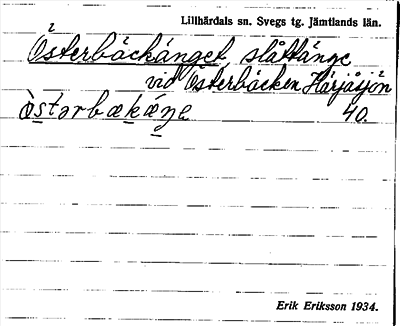 Lillhärdals sn. Svegs tg. Jämtlands län.
Österbäckänget slåttänge
vid Österbäcken Härjåsjön
40.
Erik Eriksson 1934.